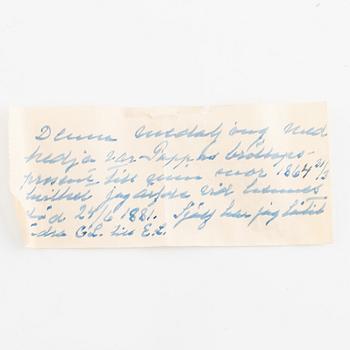 Denna medaljong med
kedja var Pappas bröllops-
present till min mor 1864 31/3
hvilket jag ärfde vid hennes
död 24/6 1881. Själf har jag låtit
ädra G.L. till E.L.